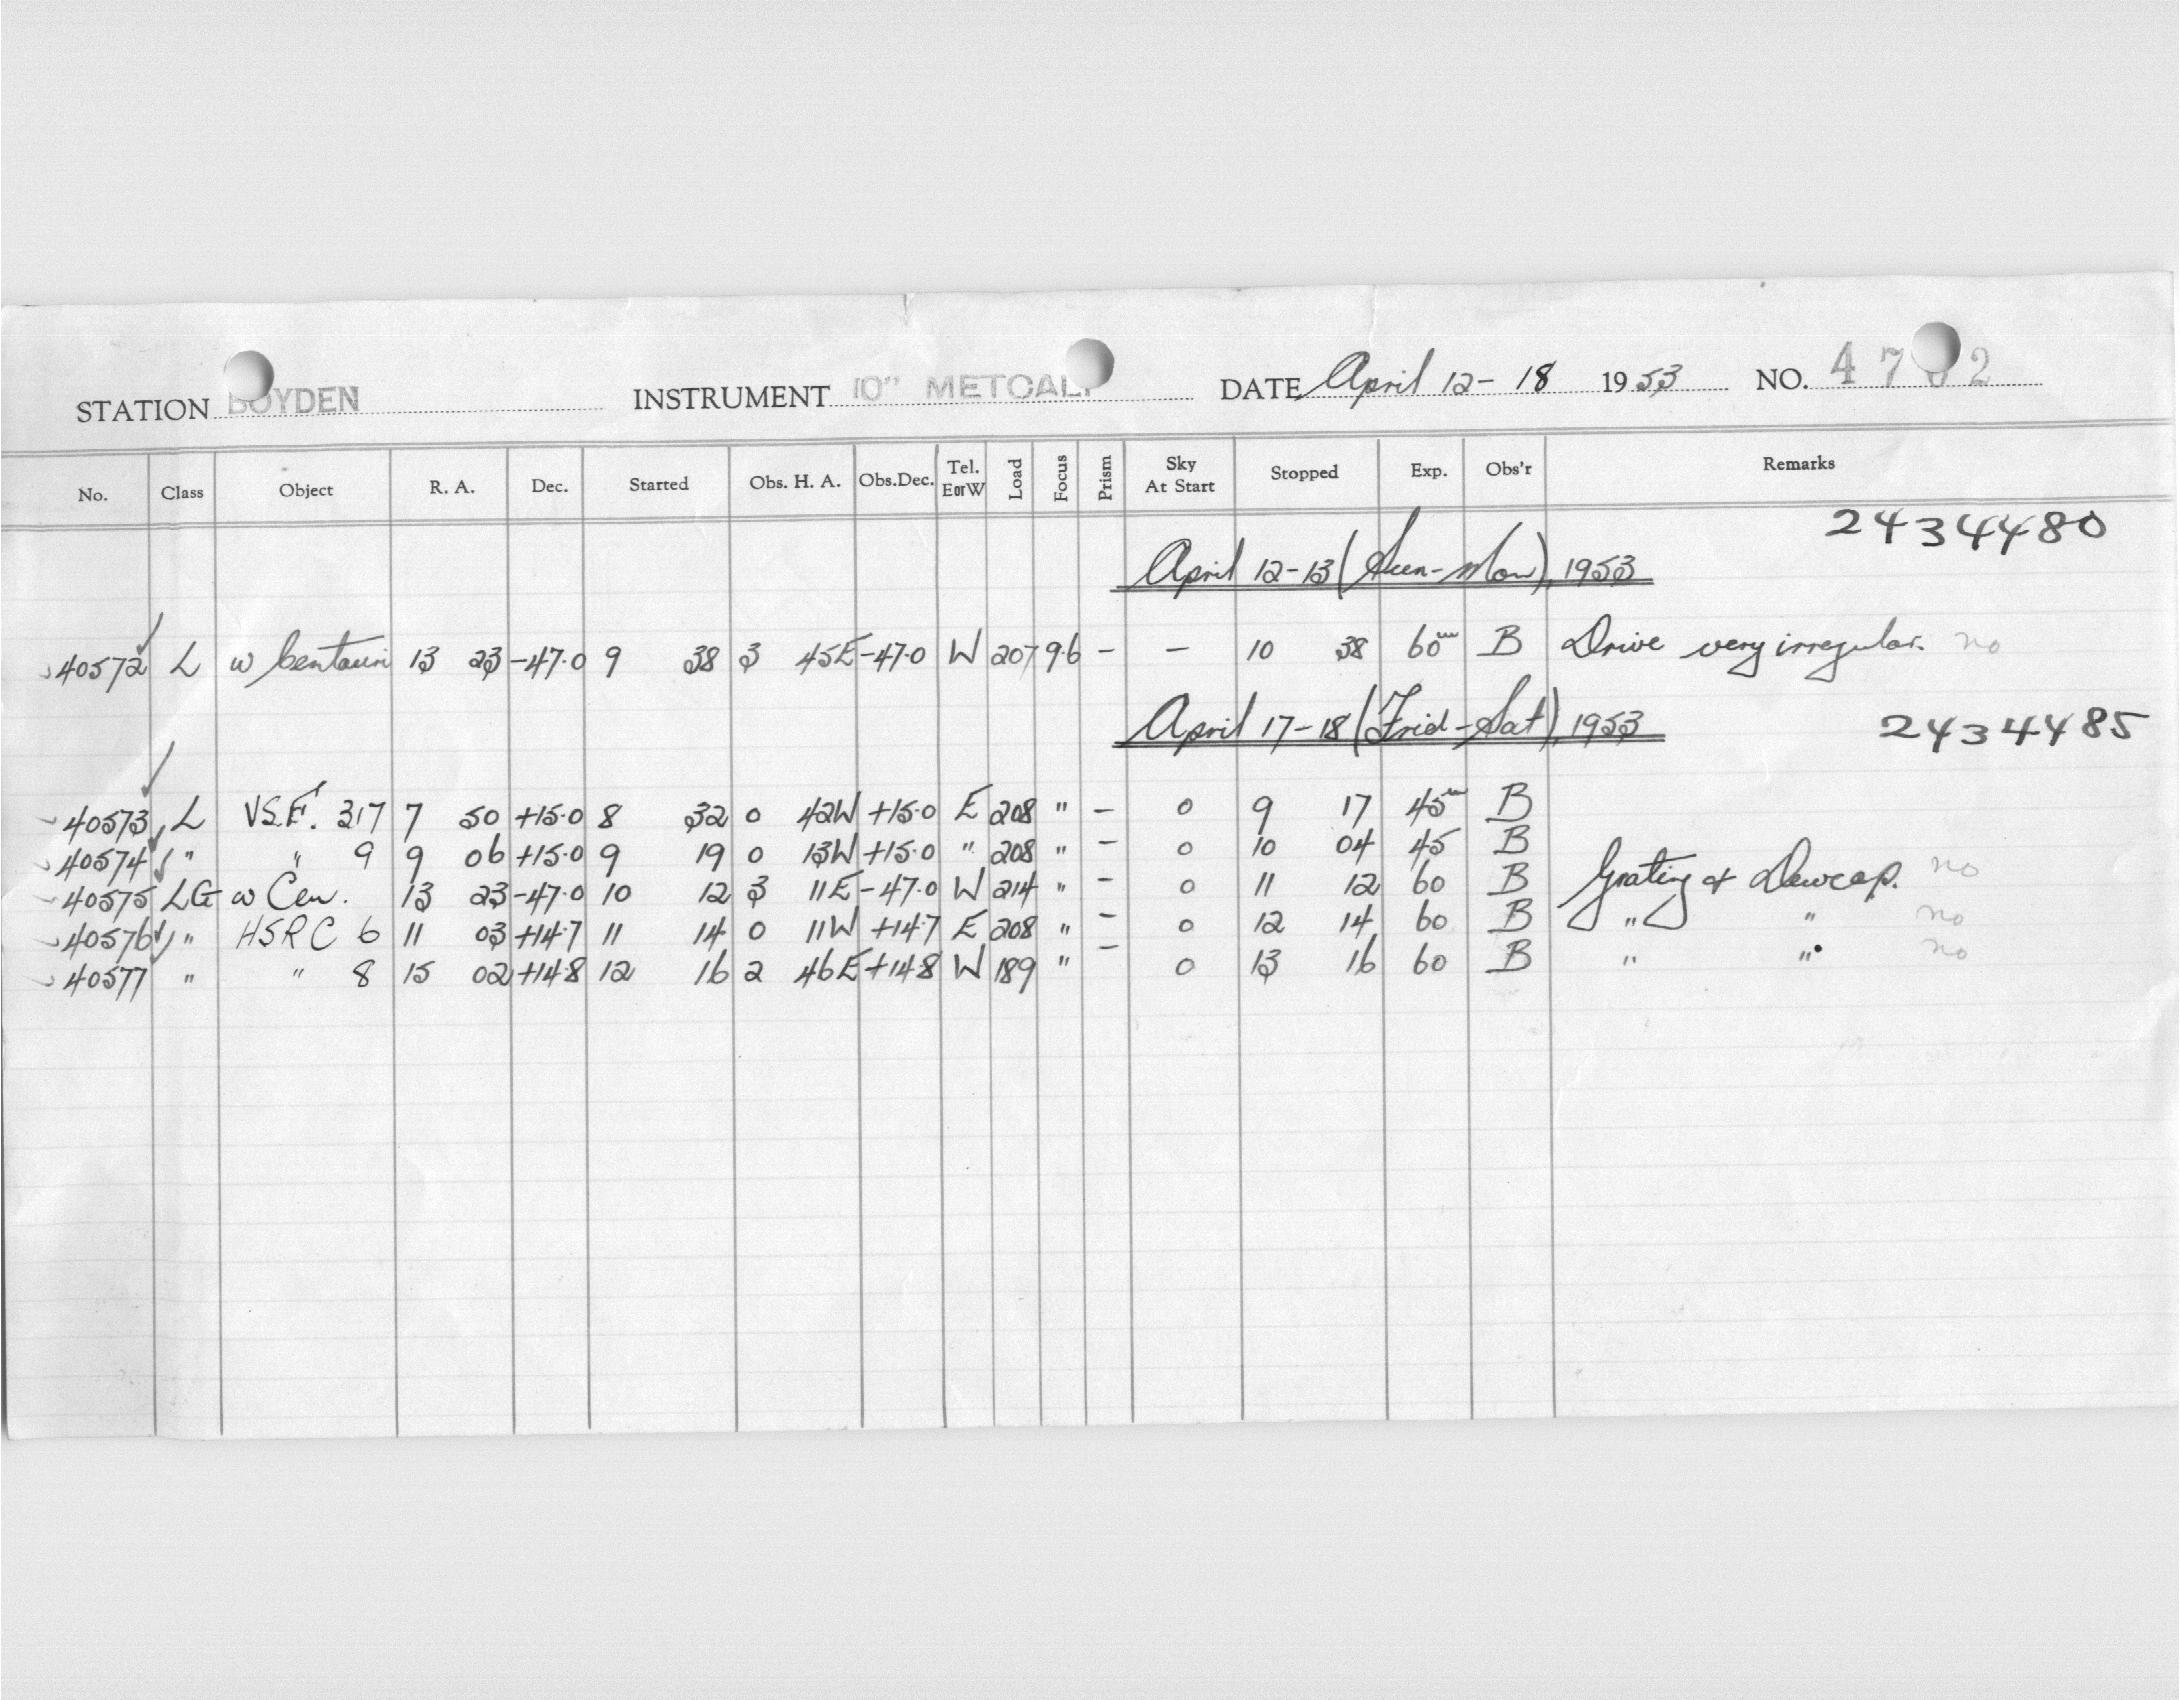 STATION BOYDEN INSTRUMENT 10" METCALF DATE April 12-18 1953 NO. 4702
No. Class Object R. A. Dec. Started Obs. H. A. Obs.Dec. Tel. EorW Load Focus Prism Sky At Start Stopped Exp. Obs'r Remarks
2434480
April 12-13 (Sun-Mon), 1953
40572 L w Centauri 13 23 -47.0 9 38 3 45E -47.0 W 207 9.6 - - 10 38 60m B Drive very irregular. no
April 17-18 (Frid-Sat), 1953 2434485
40573 L V.S.F. 317 7 50 +15.0 8 32 0 42W +15.0 E 208 " - 0 9 17 45m B
40574 " " 9 9 06 +15.0 9 19 0 13W +15.0 " 208 " - 0 10 04 45 B
40575 LG w Cen. 13 23 -47.0 10 12 3 11E -47.0 W 214 " - 0 11 12 60 B Grating & Dewcap. no
40576 " HSRC 6 11 03 +14.7 11 14 0 11W +14.7 E 208 " - 0 12 14 60 B " " no
40577 " " 8 15 02 +14.8 12 16 2 46E +14.8 W 189 " - 0 13 16 60 B " " no